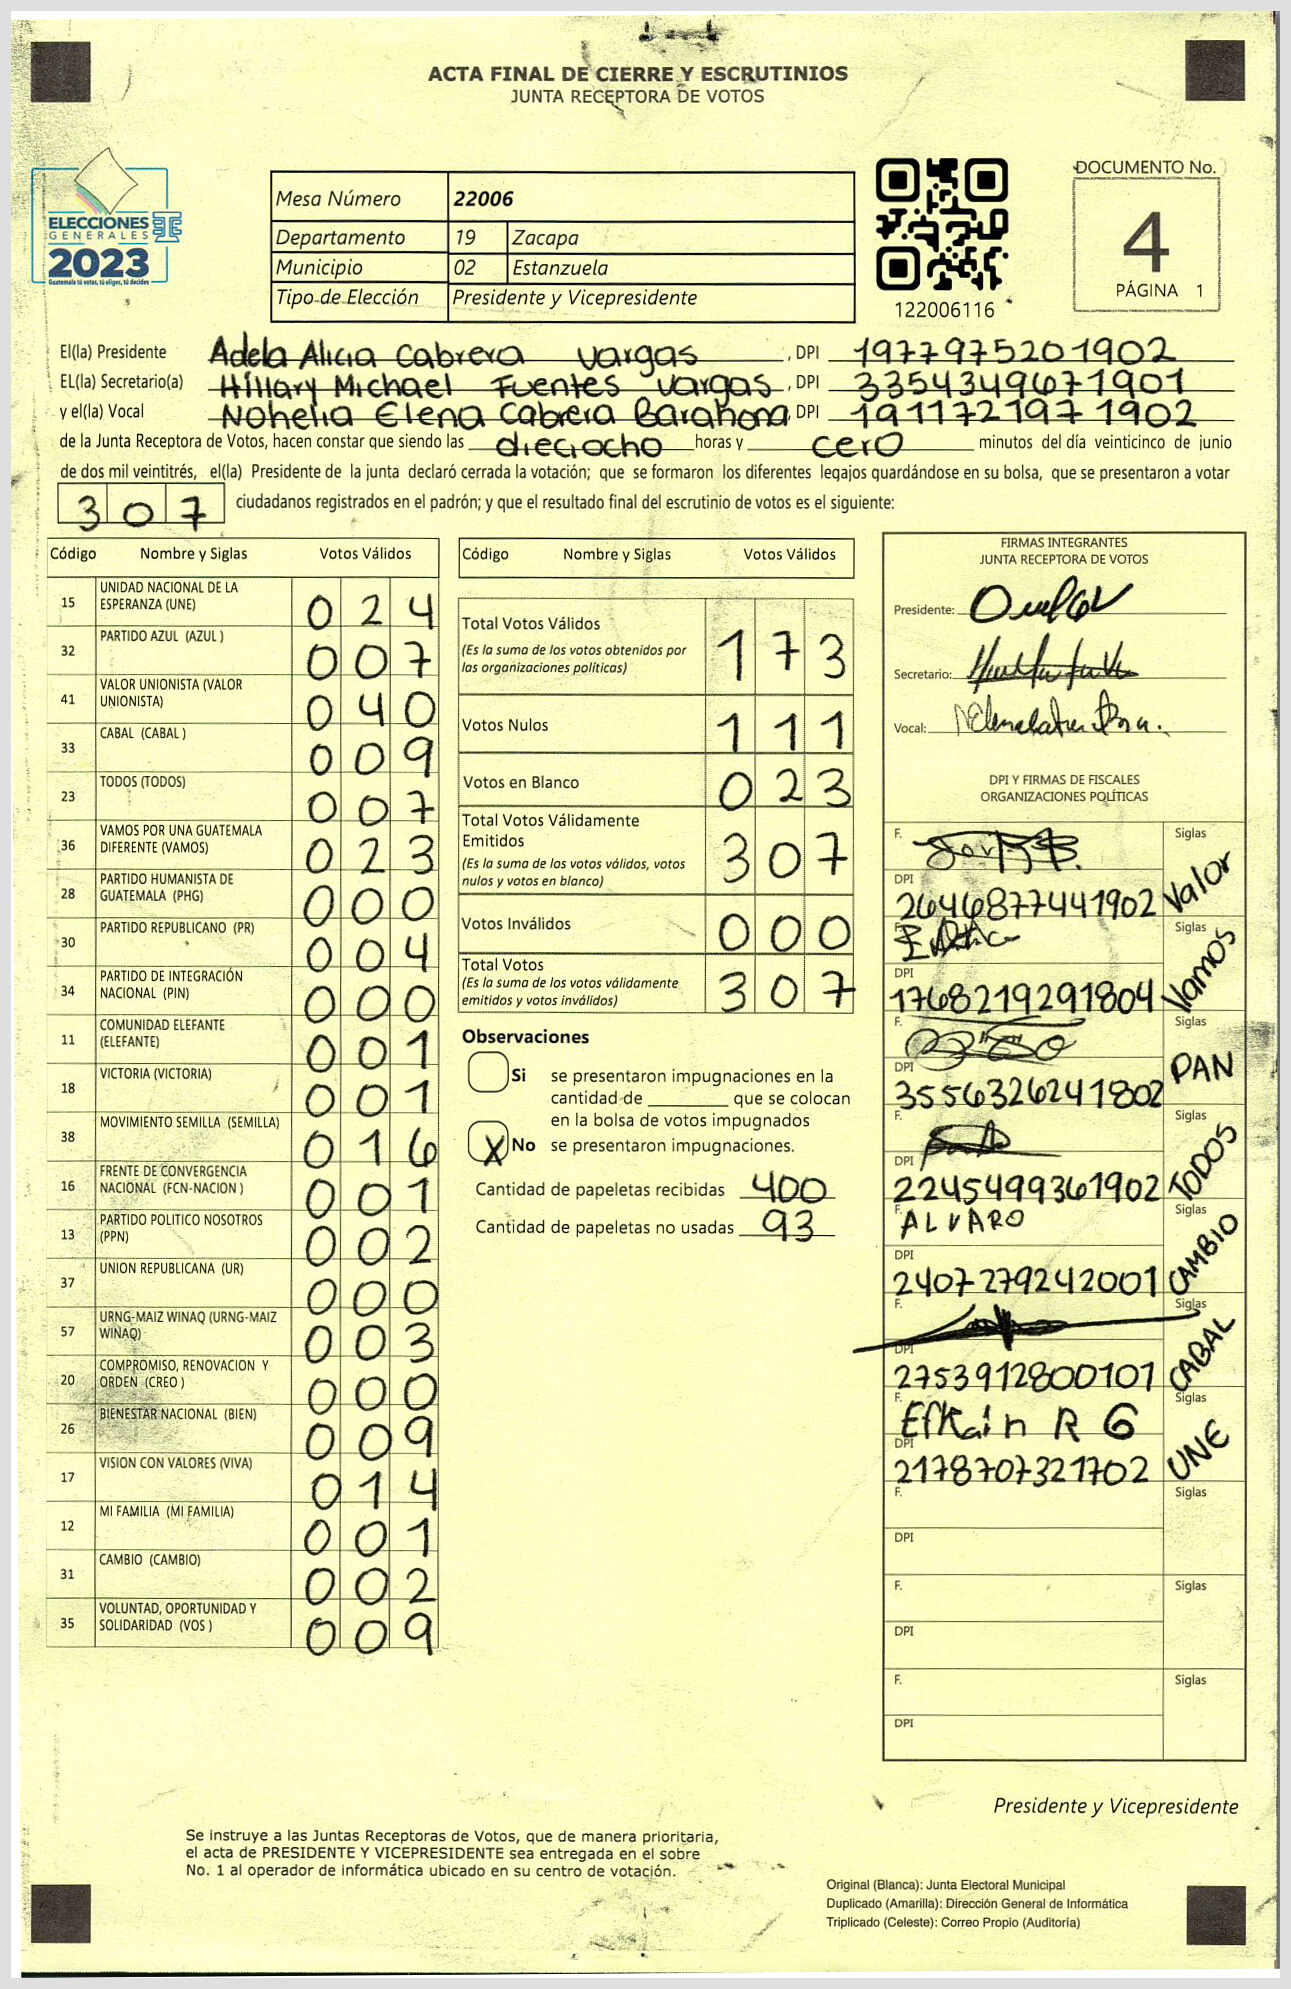 ACTA FINAL DE CIERRE Y ESCRUTINIOS
JUNTA RECEPTORA DE VOTOS
ELECCIONES
GENERALES
2023
Guatemala tú votas, tú eliges, tú decides
Mesa Número 22006
Departamento 19 Zacapa
Municipio 02 Estanzuela
Tipo de Elección Presidente y Vicepresidente
122006116
DOCUMENTO No.
4
PÁGINA 1
El(la) Presidente Adela Alicia Cabrera Vargas, DPI 1977975201902
EL(la) Secretario(a) Hillary Michael Fuentes Vargas, DPI 3354349671901
y el(la) Vocal Nohelia Elena Cabrera Barahona, DPI 1911721971902
de la Junta Receptora de Votos, hacen constar que siendo las dieciocho horas y cero minutos del día veinticinco de junio
de dos mil veintitrés, el(la) Presidente de la junta declaró cerrada la votación; que se formaron los diferentes legajos guardándose en su bolsa, que se presentaron a votar
307 ciudadanos registrados en el padrón; y que el resultado final del escrutinio de votos es el siguiente:
Código Nombre y Siglas Votos Válidos
15 UNIDAD NACIONAL DE LA ESPERANZA (UNE) 024
32 PARTIDO AZUL (AZUL ) 007
41 VALOR UNIONISTA (VALOR UNIONISTA) 040
33 CABAL (CABAL ) 009
23 TODOS (TODOS) 007
36 VAMOS POR UNA GUATEMALA DIFERENTE (VAMOS) 023
28 PARTIDO HUMANISTA DE GUATEMALA (PHG) 000
30 PARTIDO REPUBLICANO (PR) 004
34 PARTIDO DE INTEGRACIÓN NACIONAL (PIN) 000
11 COMUNIDAD ELEFANTE (ELEFANTE) 001
18 VICTORIA (VICTORIA) 001
38 MOVIMIENTO SEMILLA (SEMILLA) 016
16 FRENTE DE CONVERGENCIA NACIONAL (FCN-NACION ) 001
13 PARTIDO POLITICO NOSOTROS (PPN) 002
37 UNION REPUBLICANA (UR) 000
57 URNG-MAIZ WINAQ (URNG-MAIZ WINAQ) 003
20 COMPROMISO, RENOVACION Y ORDEN (CREO ) 000
26 BIENESTAR NACIONAL (BIEN) 009
17 VISION CON VALORES (VIVA) 014
12 MI FAMILIA (MI FAMILIA) 001
31 CAMBIO (CAMBIO) 002
35 VOLUNTAD, OPORTUNIDAD Y SOLIDARIDAD (VOS ) 009
Código Nombre y Siglas Votos Válidos
Total Votos Válidos 173
(Es la suma de los votos obtenidos por
las organizaciones políticas)
Votos Nulos 111
Votos en Blanco 023
Total Votos Válidamente
Emitidos 307
(Es la suma de los votos válidos, votos
nulos y votos en blanco)
Votos Inválidos 000
Total Votos 307
(Es la suma de los votos válidamente
emitidos y votos inválidos)
Observaciones
Si se presentaron impugnaciones en la
cantidad de ________ que se colocan
en la bolsa de votos impugnados
X No se presentaron impugnaciones.
Cantidad de papeletas recibidas 400
Cantidad de papeletas no usadas 93
FIRMAS INTEGRANTES
JUNTA RECEPTORA DE VOTOS
Presidente:
Secretario:
Vocal:
DPI Y FIRMAS DE FISCALES
ORGANIZACIONES POLÍTICAS
F. Siglas Valor
DPI 2646877441902
F. Siglas Vamos
DPI 1768219291804
F. Siglas PAN
DPI 3556326241802
F. Siglas TODOS
DPI 2245499361902
F. ALVARO Siglas CAMBIO
DPI 2407279242001
F. Siglas CABAL
DPI 2753912800101
F. Efrain R G Siglas UNE
DPI 2178707321702
F. Siglas
DPI
F. Siglas
DPI
F. Siglas
DPI
Presidente y Vicepresidente
Se instruye a las Juntas Receptoras de Votos, que de manera prioritaria,
el acta de PRESIDENTE Y VICEPRESIDENTE sea entregada en el sobre
No. 1 al operador de informática ubicado en su centro de votación.
Original (Blanca): Junta Electoral Municipal
Duplicado (Amarilla): Dirección General de Informática
Triplicado (Celeste): Correo Propio (Auditoría)